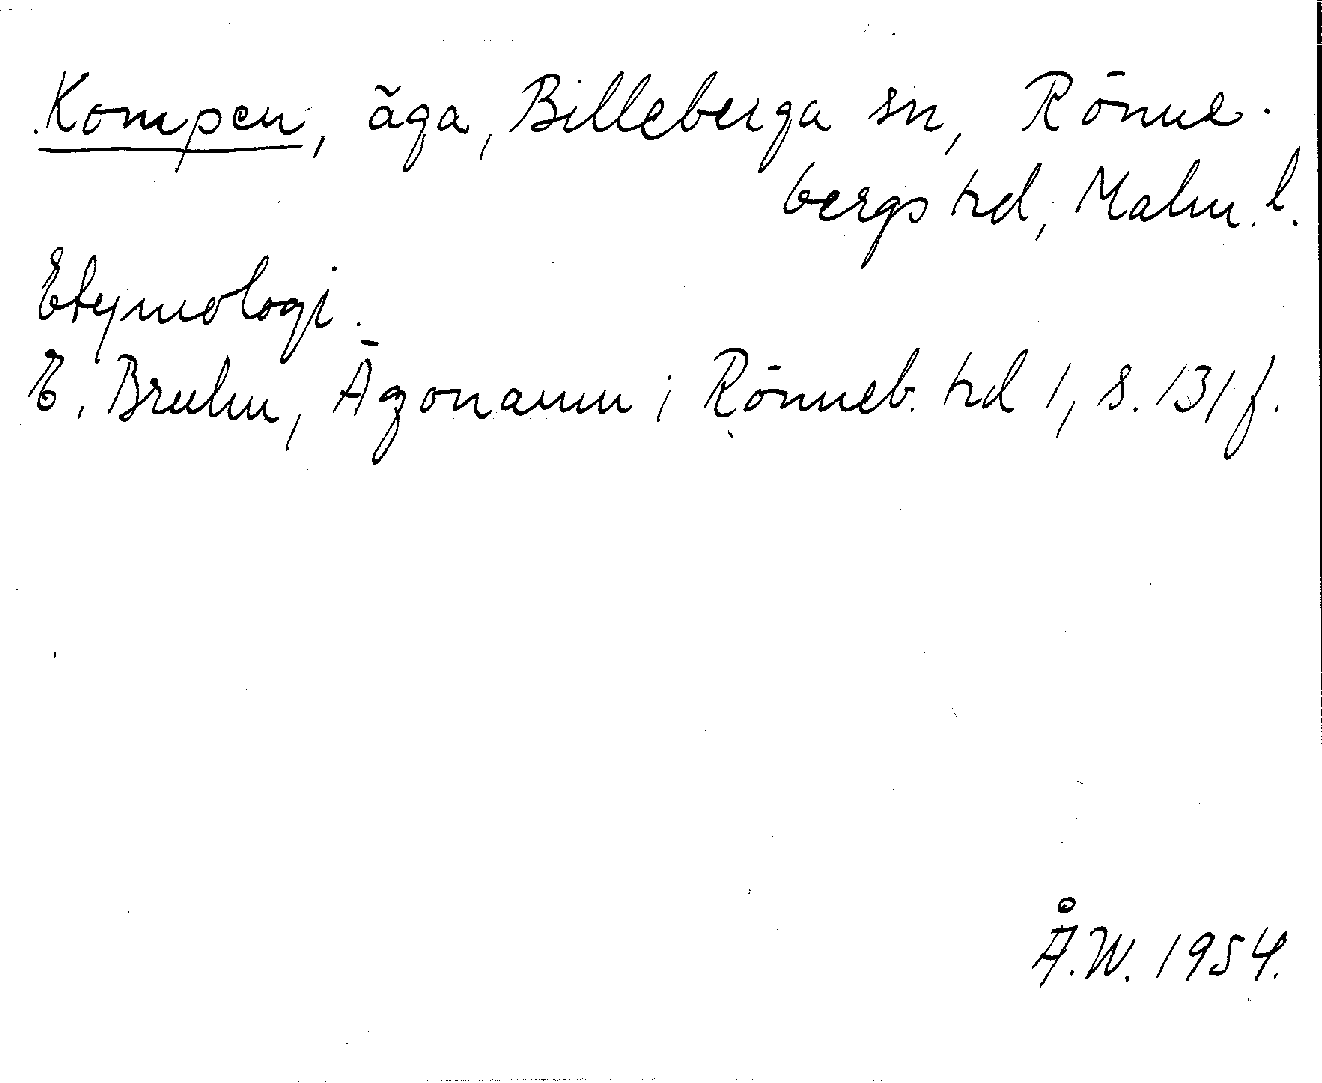 Kompen, äga, Billeberga sn, Rönne-
bergs hd, Malm. l.
Etymologi.
E. Bruhn, Ägonamn i Rönneb. hd 1, s. 131 f.
Å.W. 1954.